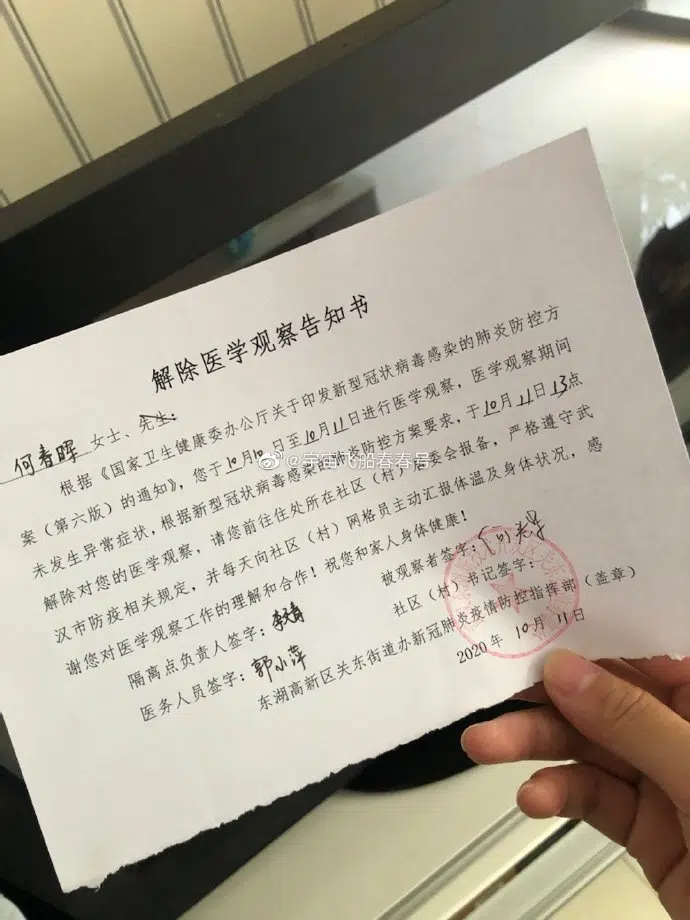 解除医学观察告知书
何春晖 女士、先生:
根据《国家卫生健康委办公厅关于印发新型冠状病毒感染的肺炎防控方
案（第六版）的通知》，您于10月10日至10月11日进行医学观察，医学观察期间
未发生异常症状，根据新型冠状病毒感染的肺炎防控方案要求，于10月11日13点
解除对您的医学观察，请您前往住处所在社区（村）居委会报备，严格遵守武
汉市防疫相关规定，并每天向社区（村）网格员主动汇报体温及身体状况，感
谢您对医学观察工作的理解和合作！祝您和家人身体健康！
被观察者签字：
隔离点负责人签字：
社区（村）书记签字：
医务人员签字：郭小萍
东湖高新区关东街道办新冠肺炎疫情防控指挥部（盖章）
2020年10月11日
@宇宙飞船春春号